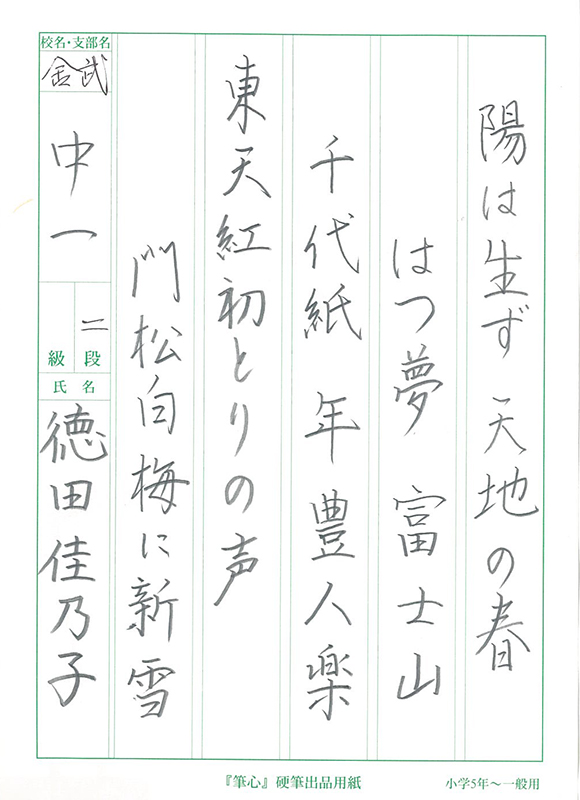 陽は生ず 天地の春
はつ夢 富士山
千代紙 年豊人楽
東天紅初とりの声
門松白梅に新雪
校名・支部名
金武
中一
二段
級
氏名
徳田佳乃子
『筆心』硬筆出品用紙
小学5年〜一般用